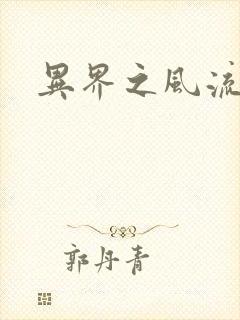 異界之風流
郭丹青